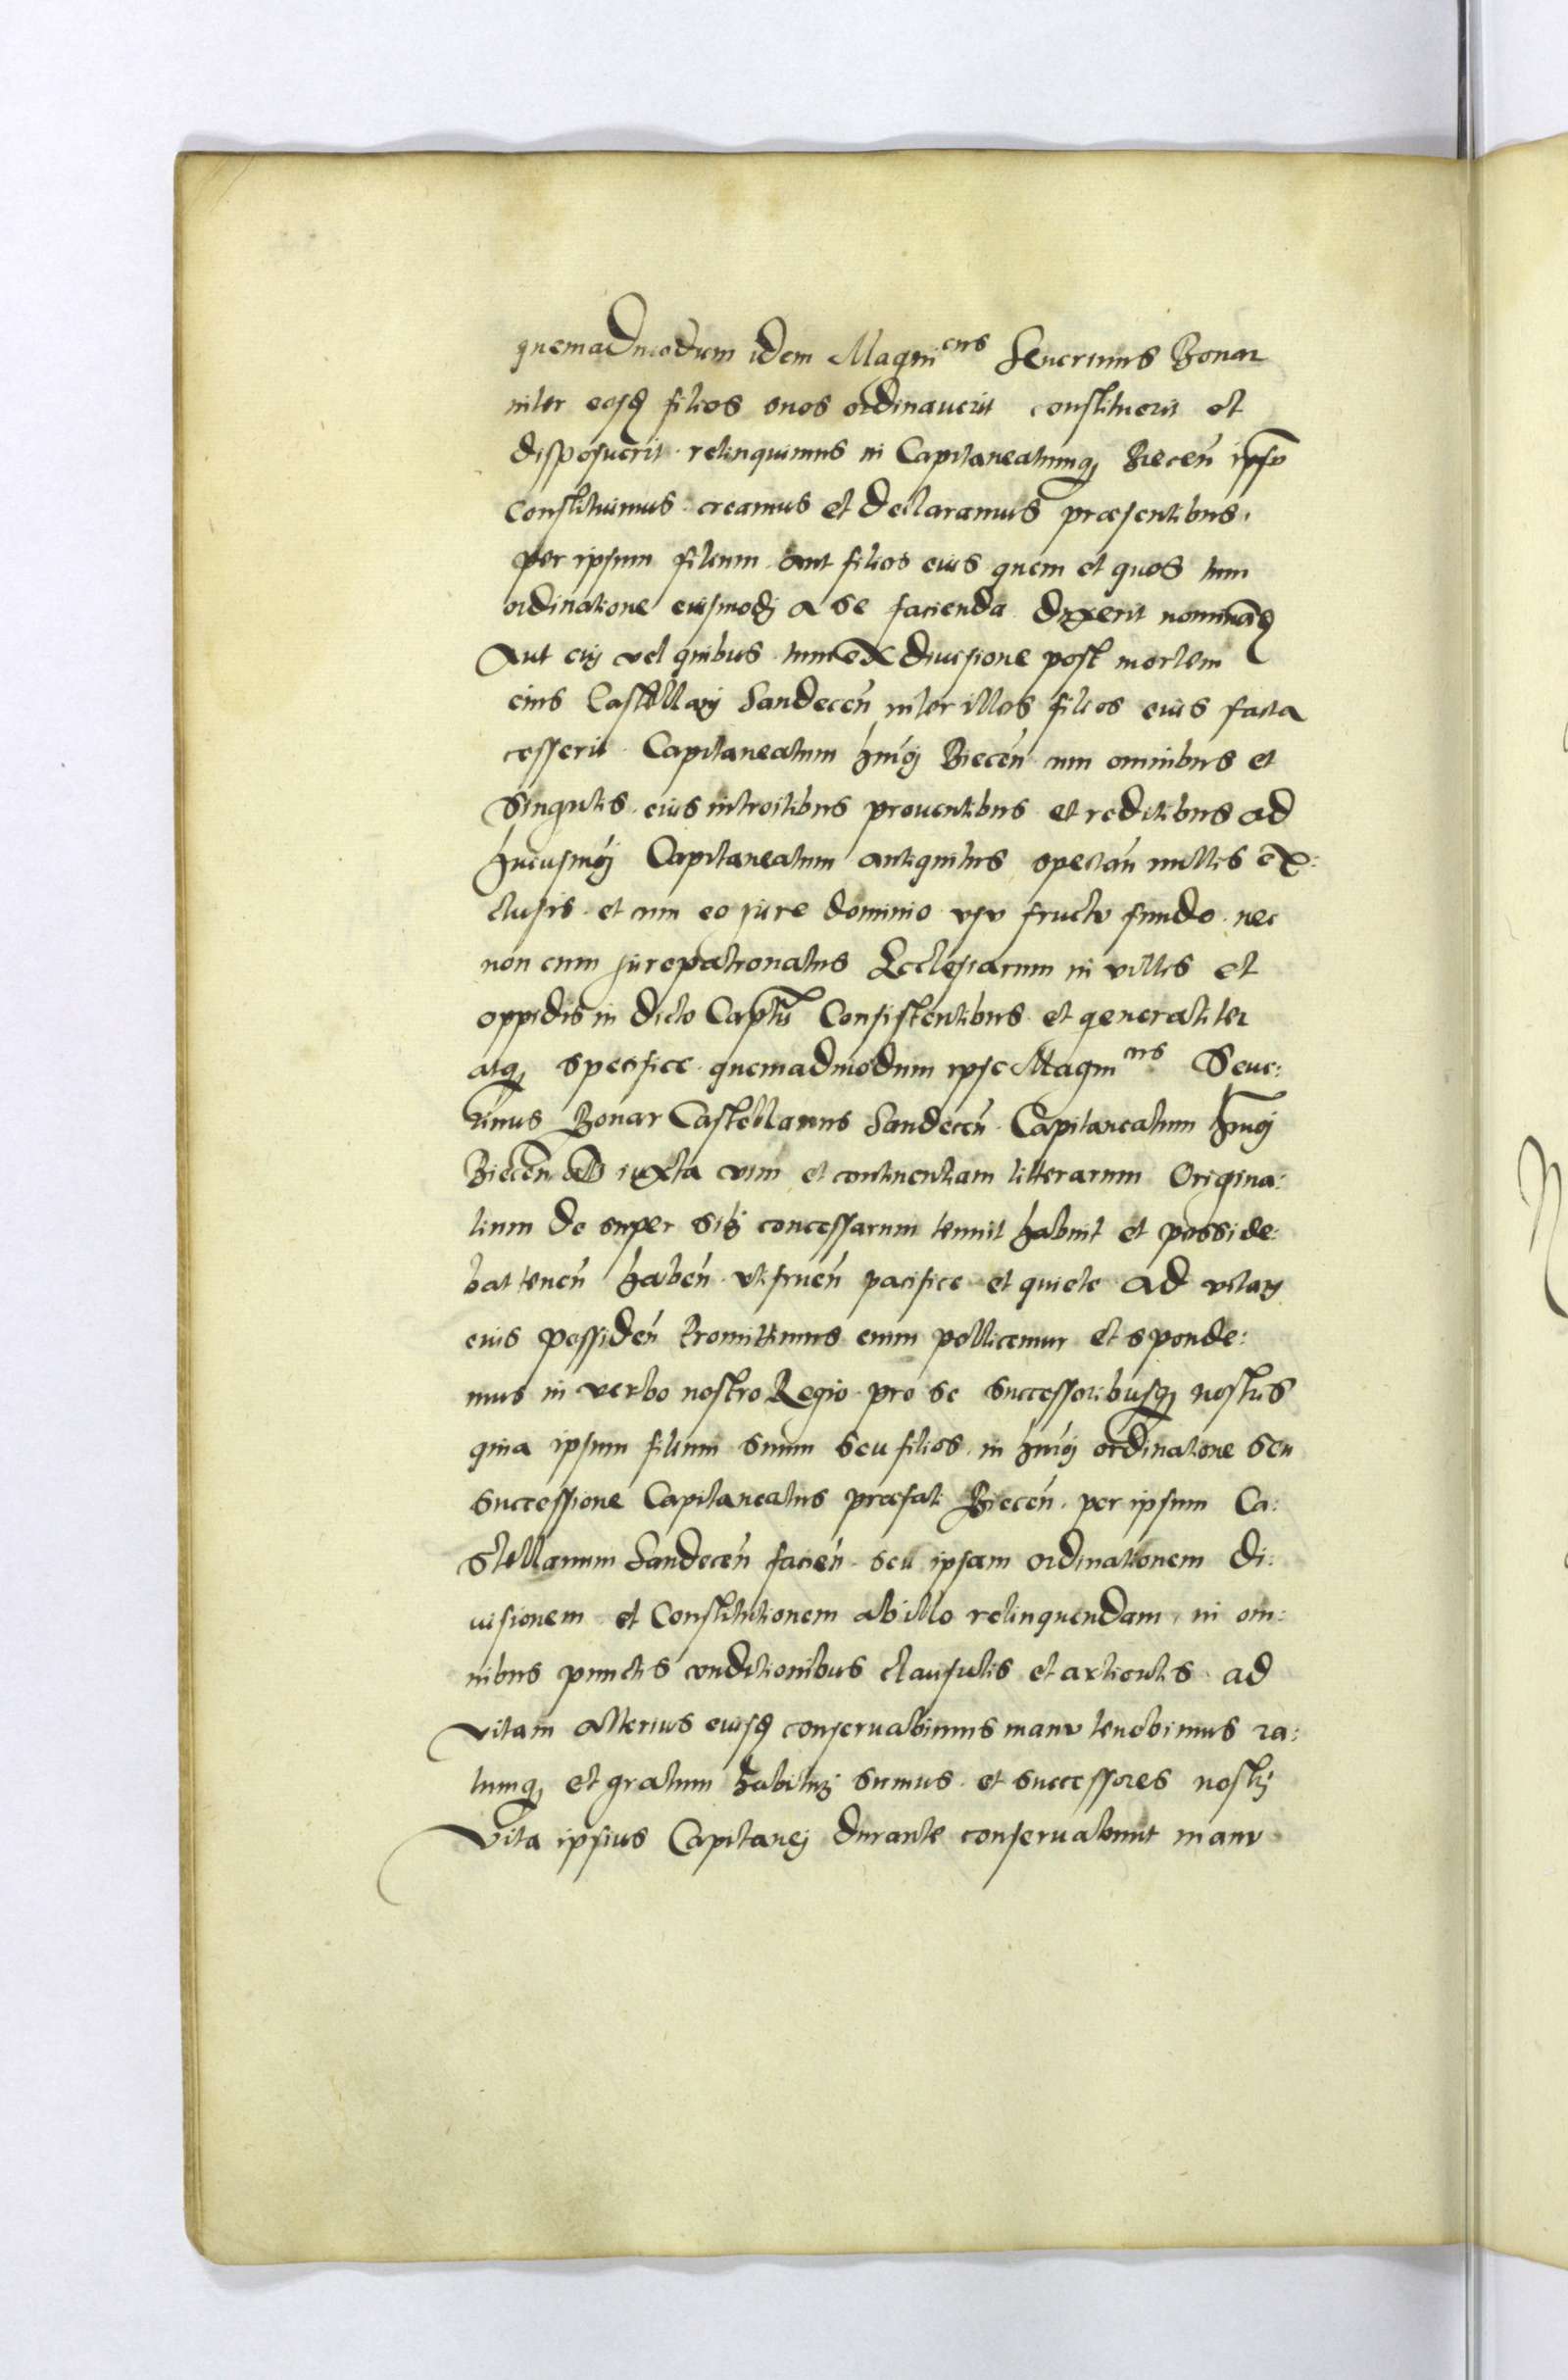 quemadmodum idem Magni^cus Seuerinus Bonar
inter eosd filios suos ordinauerit constituerit et
disposuerit relinquimus in Capitaneatumq Biecen̄ ipsū
constituimus creamus et declaramus præsentibus.
per ipsum filium aut filios eius quem et quos tum
ordinatione eiusmodj a se facienda dixerit nominād
Aut cuj vel quibus tum ex diuisione post mortem
eius Castellanj Sandecen̄ inter illos filios eius facta
cesserit Capitaneatum hmōj Biecen̄ cum omnibus et
Singulis eius introitibus prouentibus et reditibus ad
huiusmōj Capitaneatum antiquitus spectan̄ nullis ex:
clusis et cum eo jure dominio vsu fructu fundo nec
non cum jurepatronatus Ecclesiarum in villis et
oppidis in dicto Captū Consistentibus et generaliter
atq specifice quemadmodum ipse Magni^cus Seue:
rinus Bonar Castellanus Sandecen̄ Capitaneatum hmōj
Biecen̄ iuxta vim et continentiam litterarum Origina:
lium de super sibj concessarum tenuit habuit et posside:
bat tenen̄ haben̄ vtifruen̄ pacifice et quiete ad vitam
eius possiden̄ Promittimus enim pollicemur et sponde:
mus in verbo nostro Regio pro se successoribusq nostris
quia ipsum filium suum seu filios in hmōj ordinatione seu
successione Capitaneatus præfati Biecen̄ per ipsum Ca:
stellanum Sandecen̄ facien̄ seu ipsam ordinationem di:
uisionem et Constitutionem ab illo relinquendam in om:
nibus punctis conditionibus clausulis et articulis ad
vitam alterius eiusd conseruabimus manu tenebimus ra:
tumq et gratum habiturj sumus et successores nostrj
Vita ipsius Capitanej durante conseruabunt manu